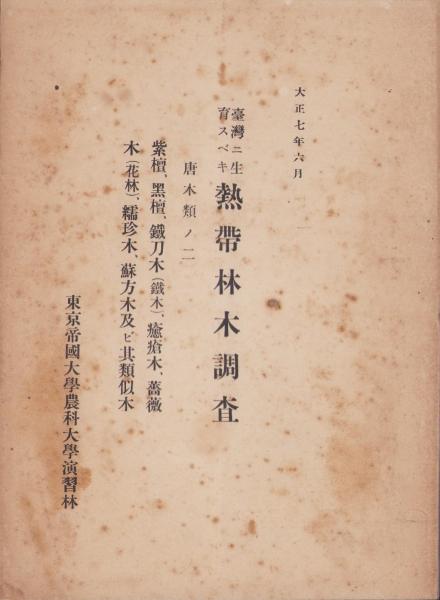 大正七年六月
臺灣ニ生育スベキ
熱帶林木調査
唐木類ノ二
紫檀、黑檀、鐵刀木(鐵木)、癒瘡木、薔薇
木(花林)、繻珍木、蘇方木及ビ其類似木
東京帝國大學農科大學演習林